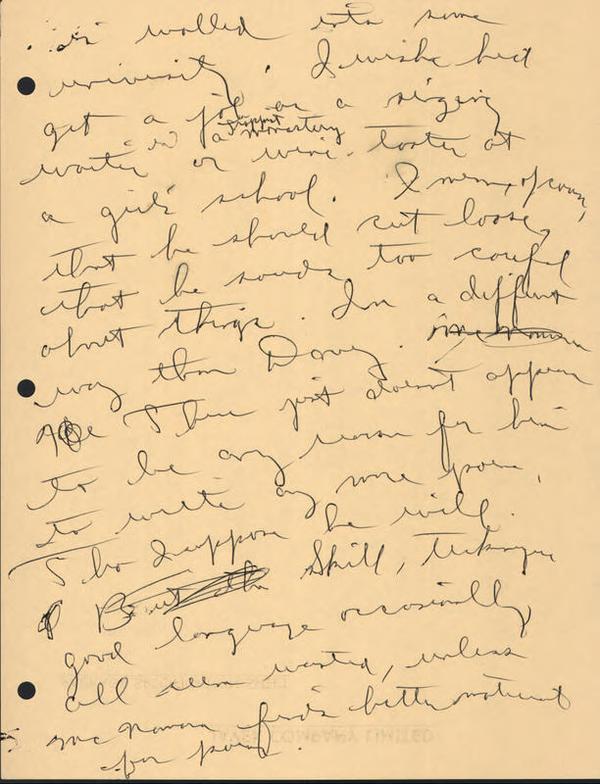 is walled into some
university. I wish he'd
get a job as a singing
support
in a monastery
waiter or wine-taster at
a girls' school. I mean, of course,
that he should cut loose,
that he sounds too careful
about things. In a different
way than Davey.
There just doesn't appear
to be any reason for him
to write any more poems,
Tho I suppose he will.
But Skill, technique
good language occasionally
all seem wasted, unless
finds better material
for poems.